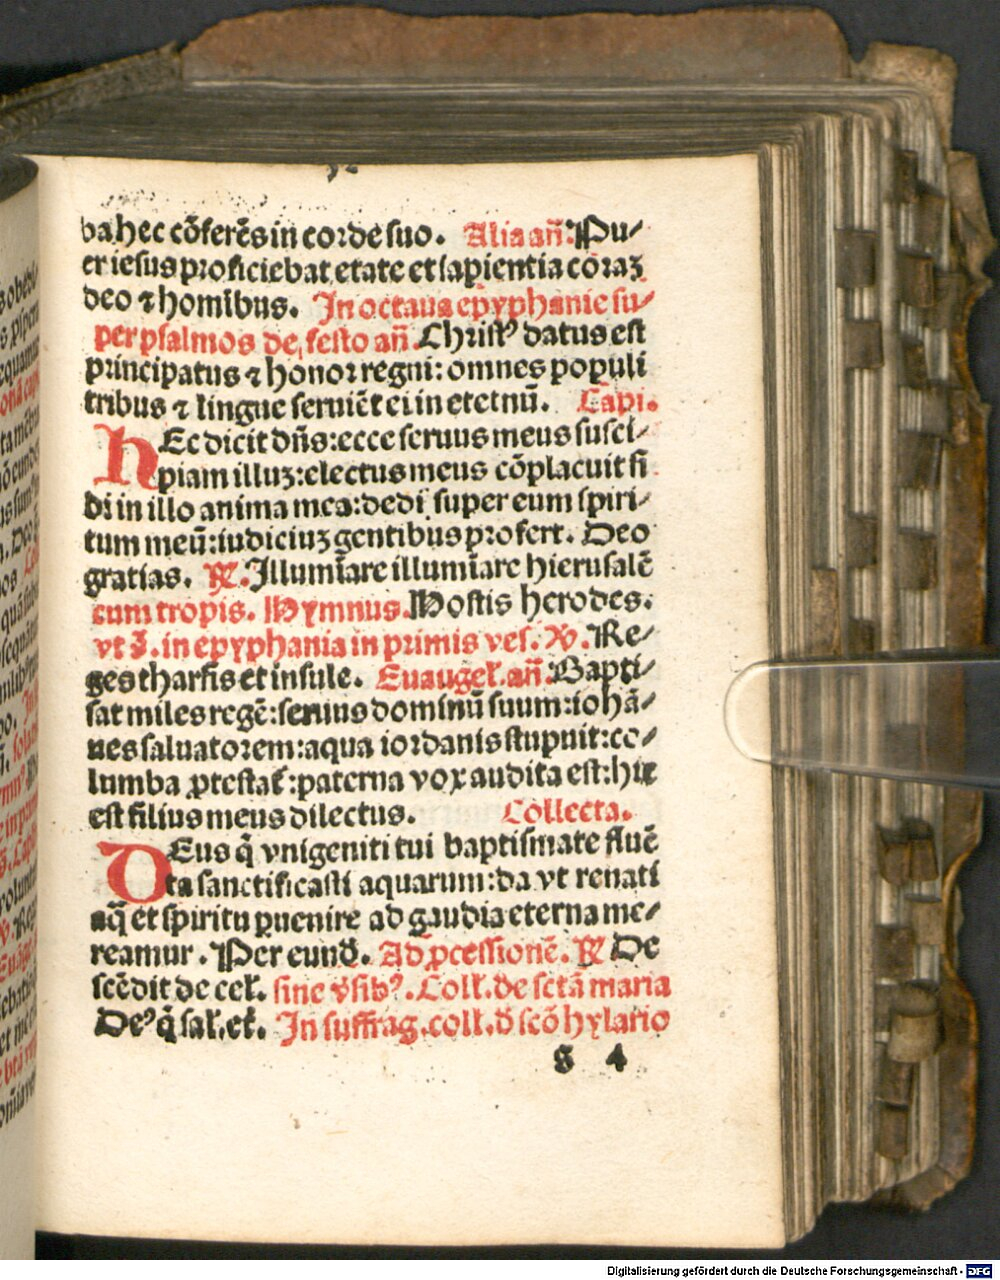 ba hec cõferẽs in corde suo. Alia añ. Pu⸗
er iesus proficiebat etate et sapientia corã
deo ⁊ homĩbus. In octaua epyphanie su⸗
per psalmos de festo añ. Christꝰ datus est
principatus ⁊ honor regni: omnes populi
tribus ⁊ lingue seruiẽt ei in etetnũ. Capi.
HEc dicit dñs: ecce seruus meus susci⸗
piam illuꝫ: electus meus cõplacuit si
bi in illo anima mea: dedi super eum spiri⸗
tum meũ: iudiciuꝫ gentibus profert. Deo
gratias. ℟. Illumĩare illumĩare hierusalẽ
cum tropis. Hymnus. Hostis herodes.
vt s. in epyphania in primis ves. ℣. Re⸗
ges tharsis et insule. Euaugeł. añ. Bapti⸗
sat miles regẽ: seruus dominũ suum: iohã⸗
nes saluatorem: aqua iordanis stupuit: co⸗
lumba ꝓtestat̃: paterna vox audita est: hic
est filius meus dilectus. Collecta.
DEus q̃ vnigeniti tui baptismate fluẽ
ta sanctificasti aquarum: da vt renati
aq̃ et spiritu ꝑuenire ad gaudia eterna me⸗
reamur. Per eund̃. Ad ꝓcessionẽ. ℟ De
scẽdit de ceł. sine v̾sibꝰ. Coll̃. de sctã maria
Deꝰ q̃ sal. et̃. In suffrag. coll̃. d̾ scõ hylario
S 4
Digitalisierung gefördert durch die Deutsche Forschungsgemeinschaft - DFG